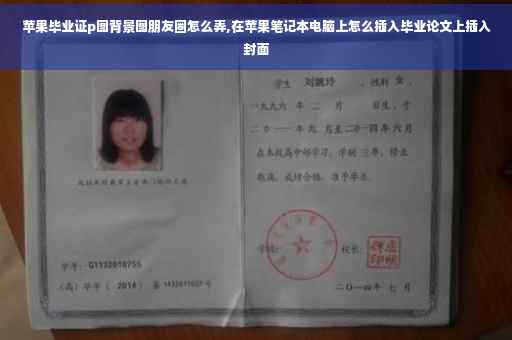 苹果毕业证p图背景图朋友圈怎么弄,在苹果笔记本电脑上怎么插入毕业论文上插入
封面
学生 刘婉玲 ,性别 女 ,
一九九六 年 二 月 日生,于
二〇一一年九 月至二〇一四年六月
在本校高中部学习,学制 三年,修业
期满,成绩合格,准予毕业。
学校: 校长:
学号: G1132010755
(高)毕字( 2014 )第 1432011607 号
二〇一四年 七 月